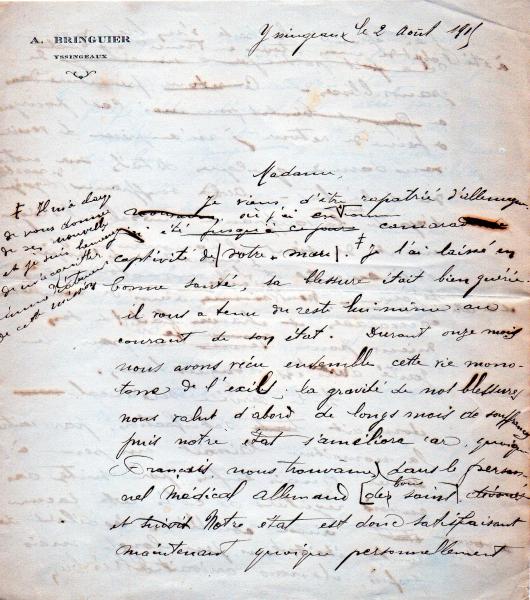 A. BRINGUIER
YSSINGEAUX
Yssingeaux le 2 Août 1915
Madame,
Je viens d'être rapatrié d'allemagne
où j'ai en
été jusqu'à ce jour camarade
captivité de votre mari. Je l'ai laissé en
bonne santé, sa blessure était bien guérie
il vous a tenu du reste lui même au
courant de son état. Durant onze mois
nous avons vécu ensemble cette vie mono-
tone de l'exil, la gravité de nos blessures
nous valut d'abord de longs mois de souffrances
puis notre état s'améliora car, quoique
Français nous trouvâmes dans le person-
nel médical allemand des soins
et Notre état est donc satisfaisant
maintenant quoique personnellement
Il m'a
de vous donner
de ses nouvelles
et je suis
de
de cette mission